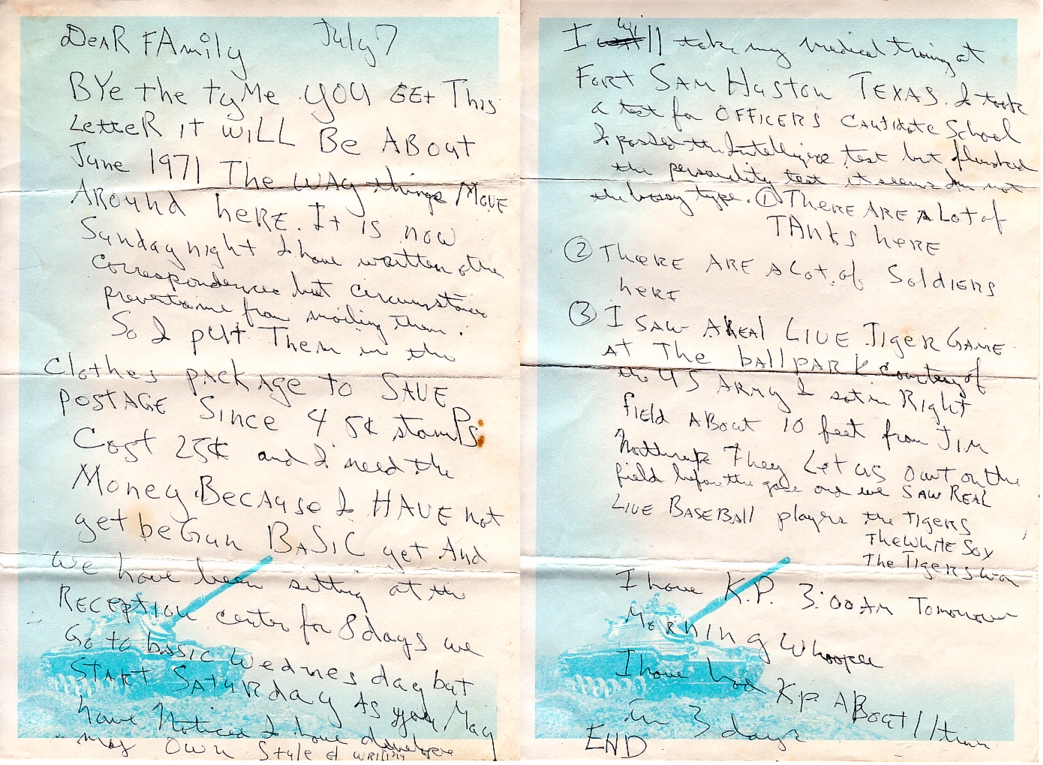 DEAR FAMILY July 7
BYE the tyMe YOU GEt This
LetteR it wiLL Be ABOut
June 1971 The WAY things MOVE
AROUND heRE. It is now
Sunday night I have written other
correspondences but circumstances
from mailing them.
So I put Them in the
Clothes package to SAVE
POSTAGE Since 4 5¢ stamps
Cost 25¢ and I need the
Money. Because I HAVE not
get beGun BASIC yet And
we have been sitting at the
RECEPTION center for 8 days we
Go to basic Wednesday but
START SATURDAY AS you MAY
have Noticed I have
my OWN Style of WRITING
I will take my Medical training at
FORT SAM HUSTON TEXAS. I took
a test for OFFICERS CANTIDATE School
I passed the Intelligence test but flunked
the personality test it seems Im not
the bossy type. ① THERE ARE A Lot of
TANKS heRE
② THERE ARE A Lot of Soldiers
heRE
③ I SAW A REAL LIVE TIGER GAME
AT The ballpark courtesy of
the US ARMY I sat in Right
field ABOUT 10 feet from JIM
Northrup They Let us out on the
field before the game and we SAW REAL
LIVE BASEBALL players the TIGERS
The White Sox
The Tigers won
I have K.P. 3:00 AM Tomorrow
Morning Whoopee
I have had KP ABout 11 times
in 3 days
END